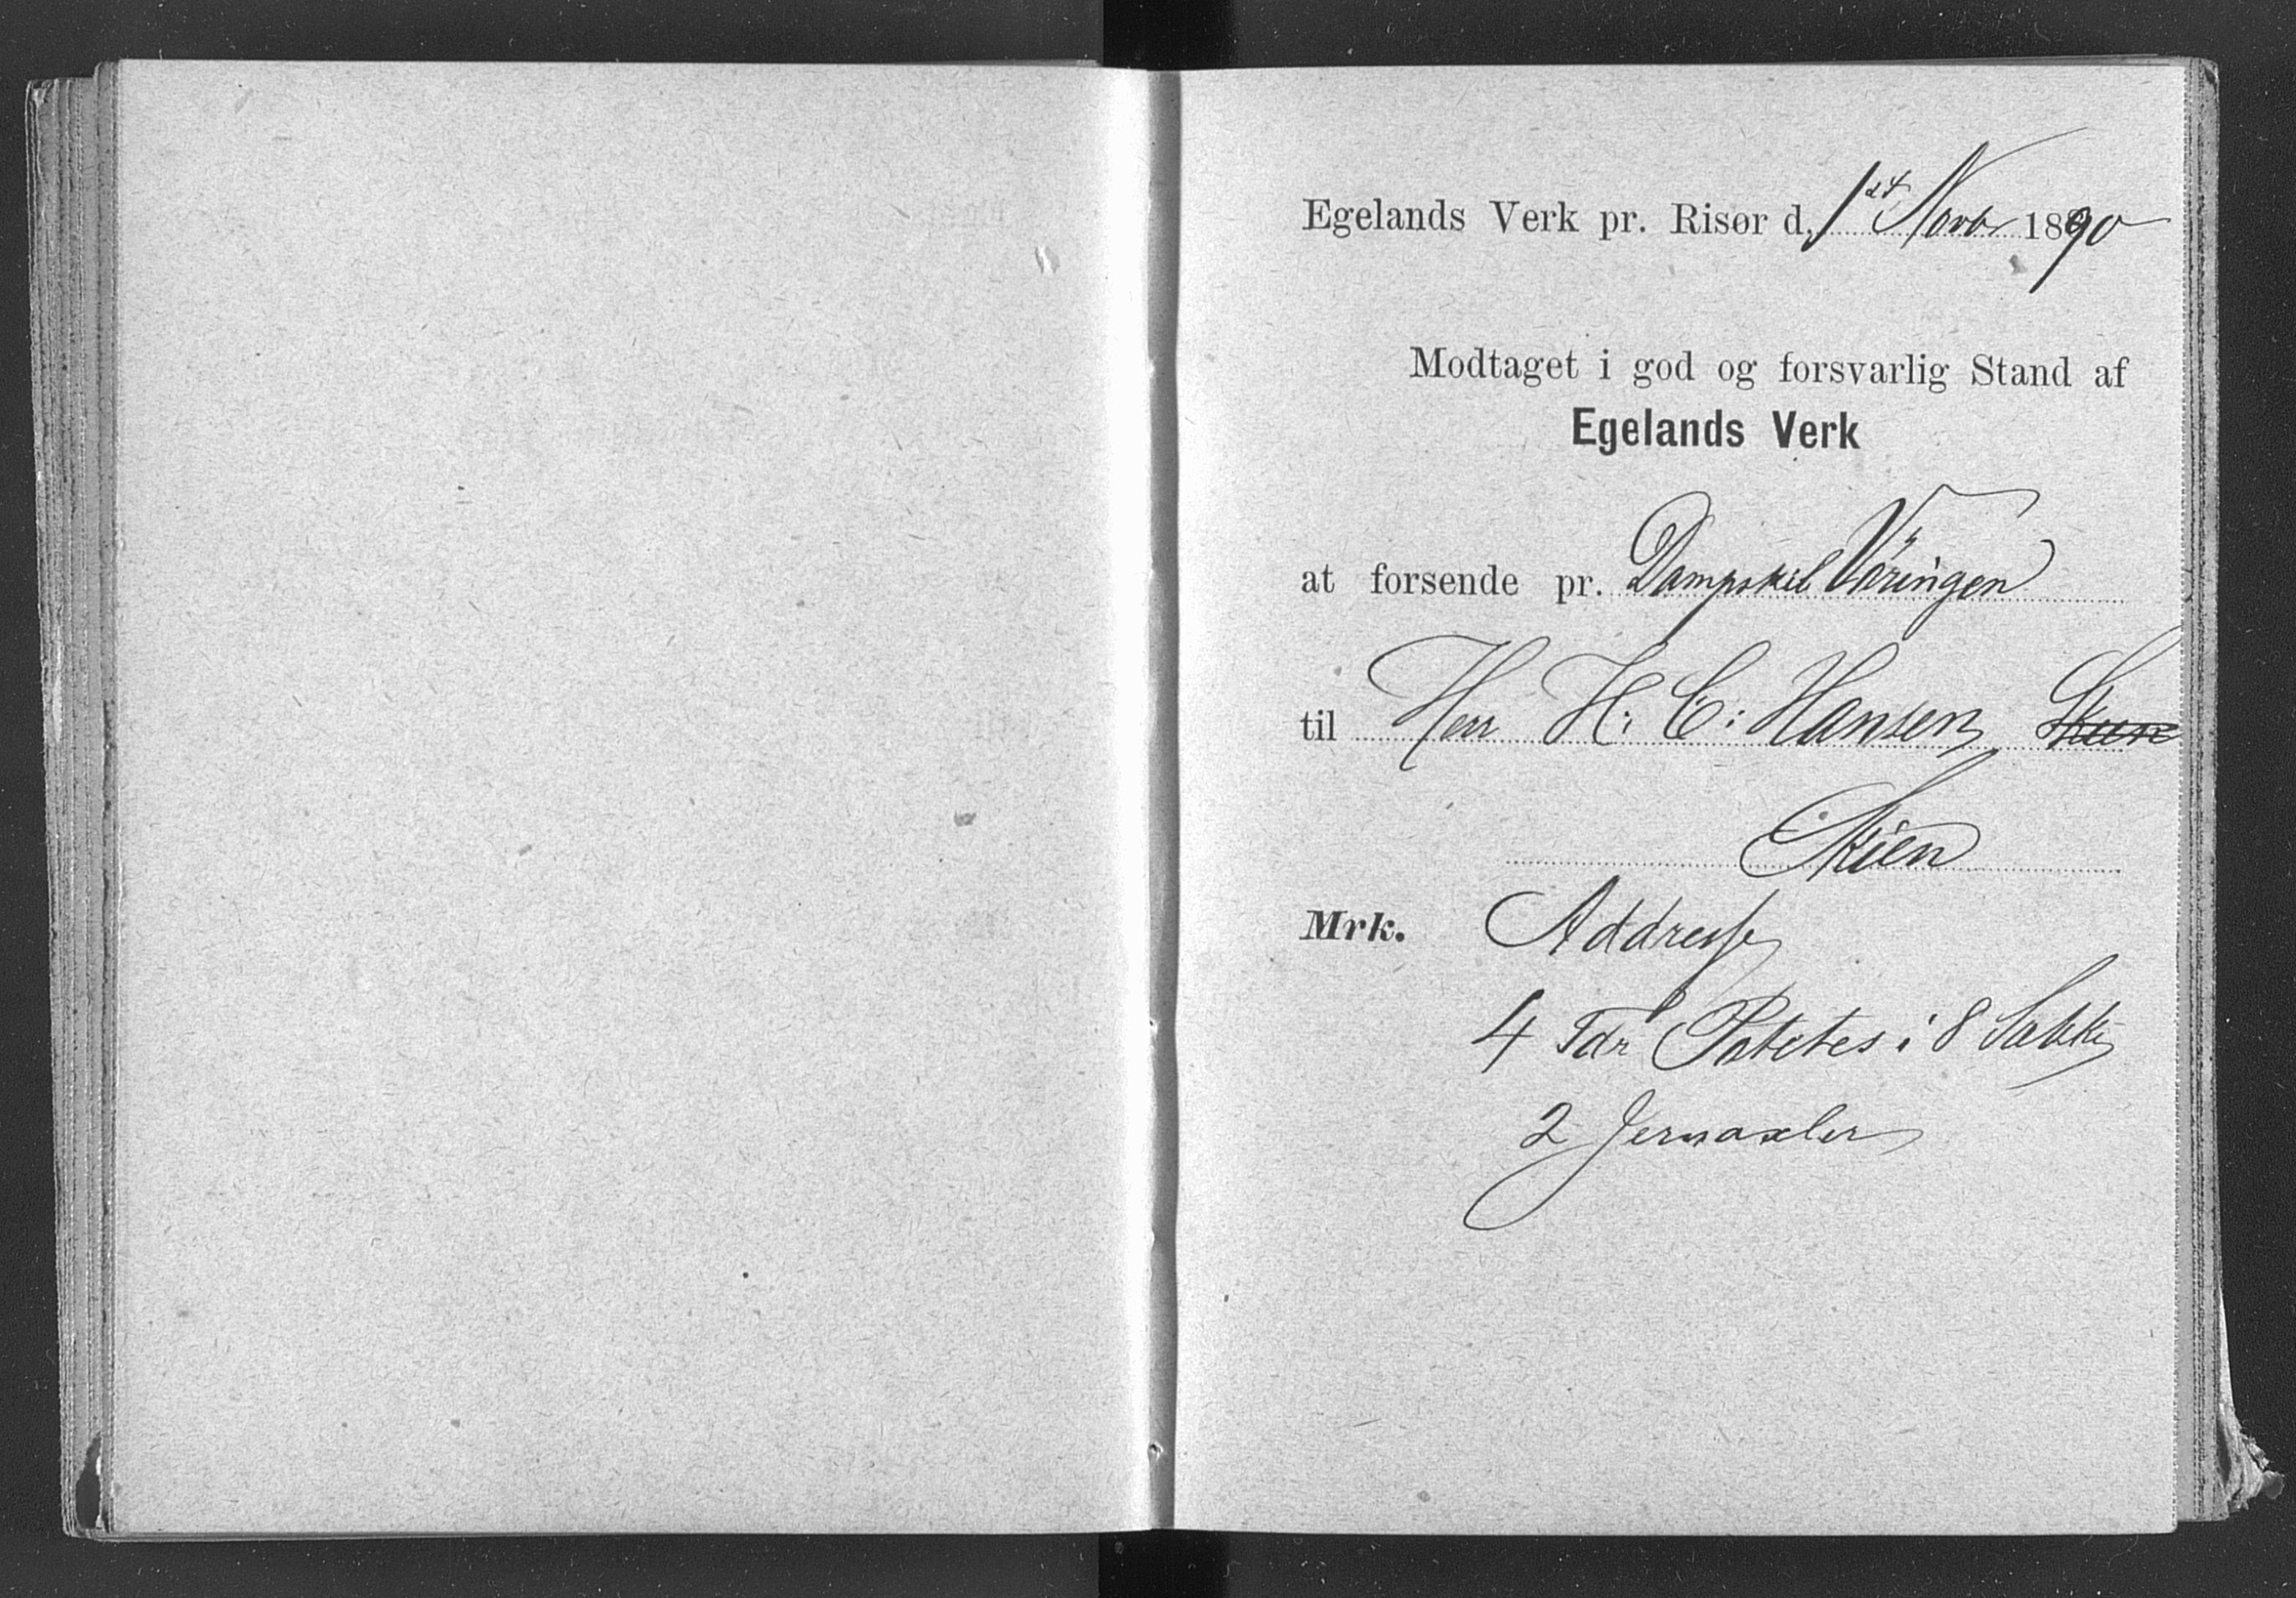 Egelands Verk pr. Risør d. 1st Novbr 1890
Modtaget i god og forsvarlig Stand af
Egelands Verk
at forsende pr. Dampskib Väringen
til Herr H: C: Hansen Skien
Skien
Mrk. Addresse
4 Tdr Potetes i 8 Sække
2 Jernaxler